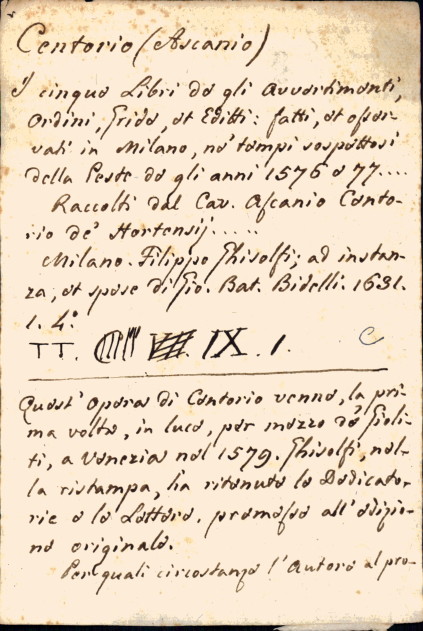 Centorio (Ascanio)
I cinque Libri de gli Avvertimenti,
Ordini, Gride, et Editti: fatti, et osser-
vati in Milano, ne' tempi sospettosi
della Peste de gli anni 1576 e 77....
Raccolti dal Cav. Ascanio Cento-
rio de' Hortensij.....
Milano. Filippo Ghisolfi; ad instan-
za, et spese di Gio. Bat. Bidelli. 1631.
1. 4.°
TT. IX. 1. C
Quest' Opera di Centorio venne, la pri-
ma volta, in luce, per mezzo de' Gioli-
ti, a Venezia nel 1579. Ghisolfi, nel-
la ristampa, ha ritenuto le Dedicato-
rie e le Lettere, premesse all' edizio-
ne originale.
Per quali circostanze l'Autore al pro-